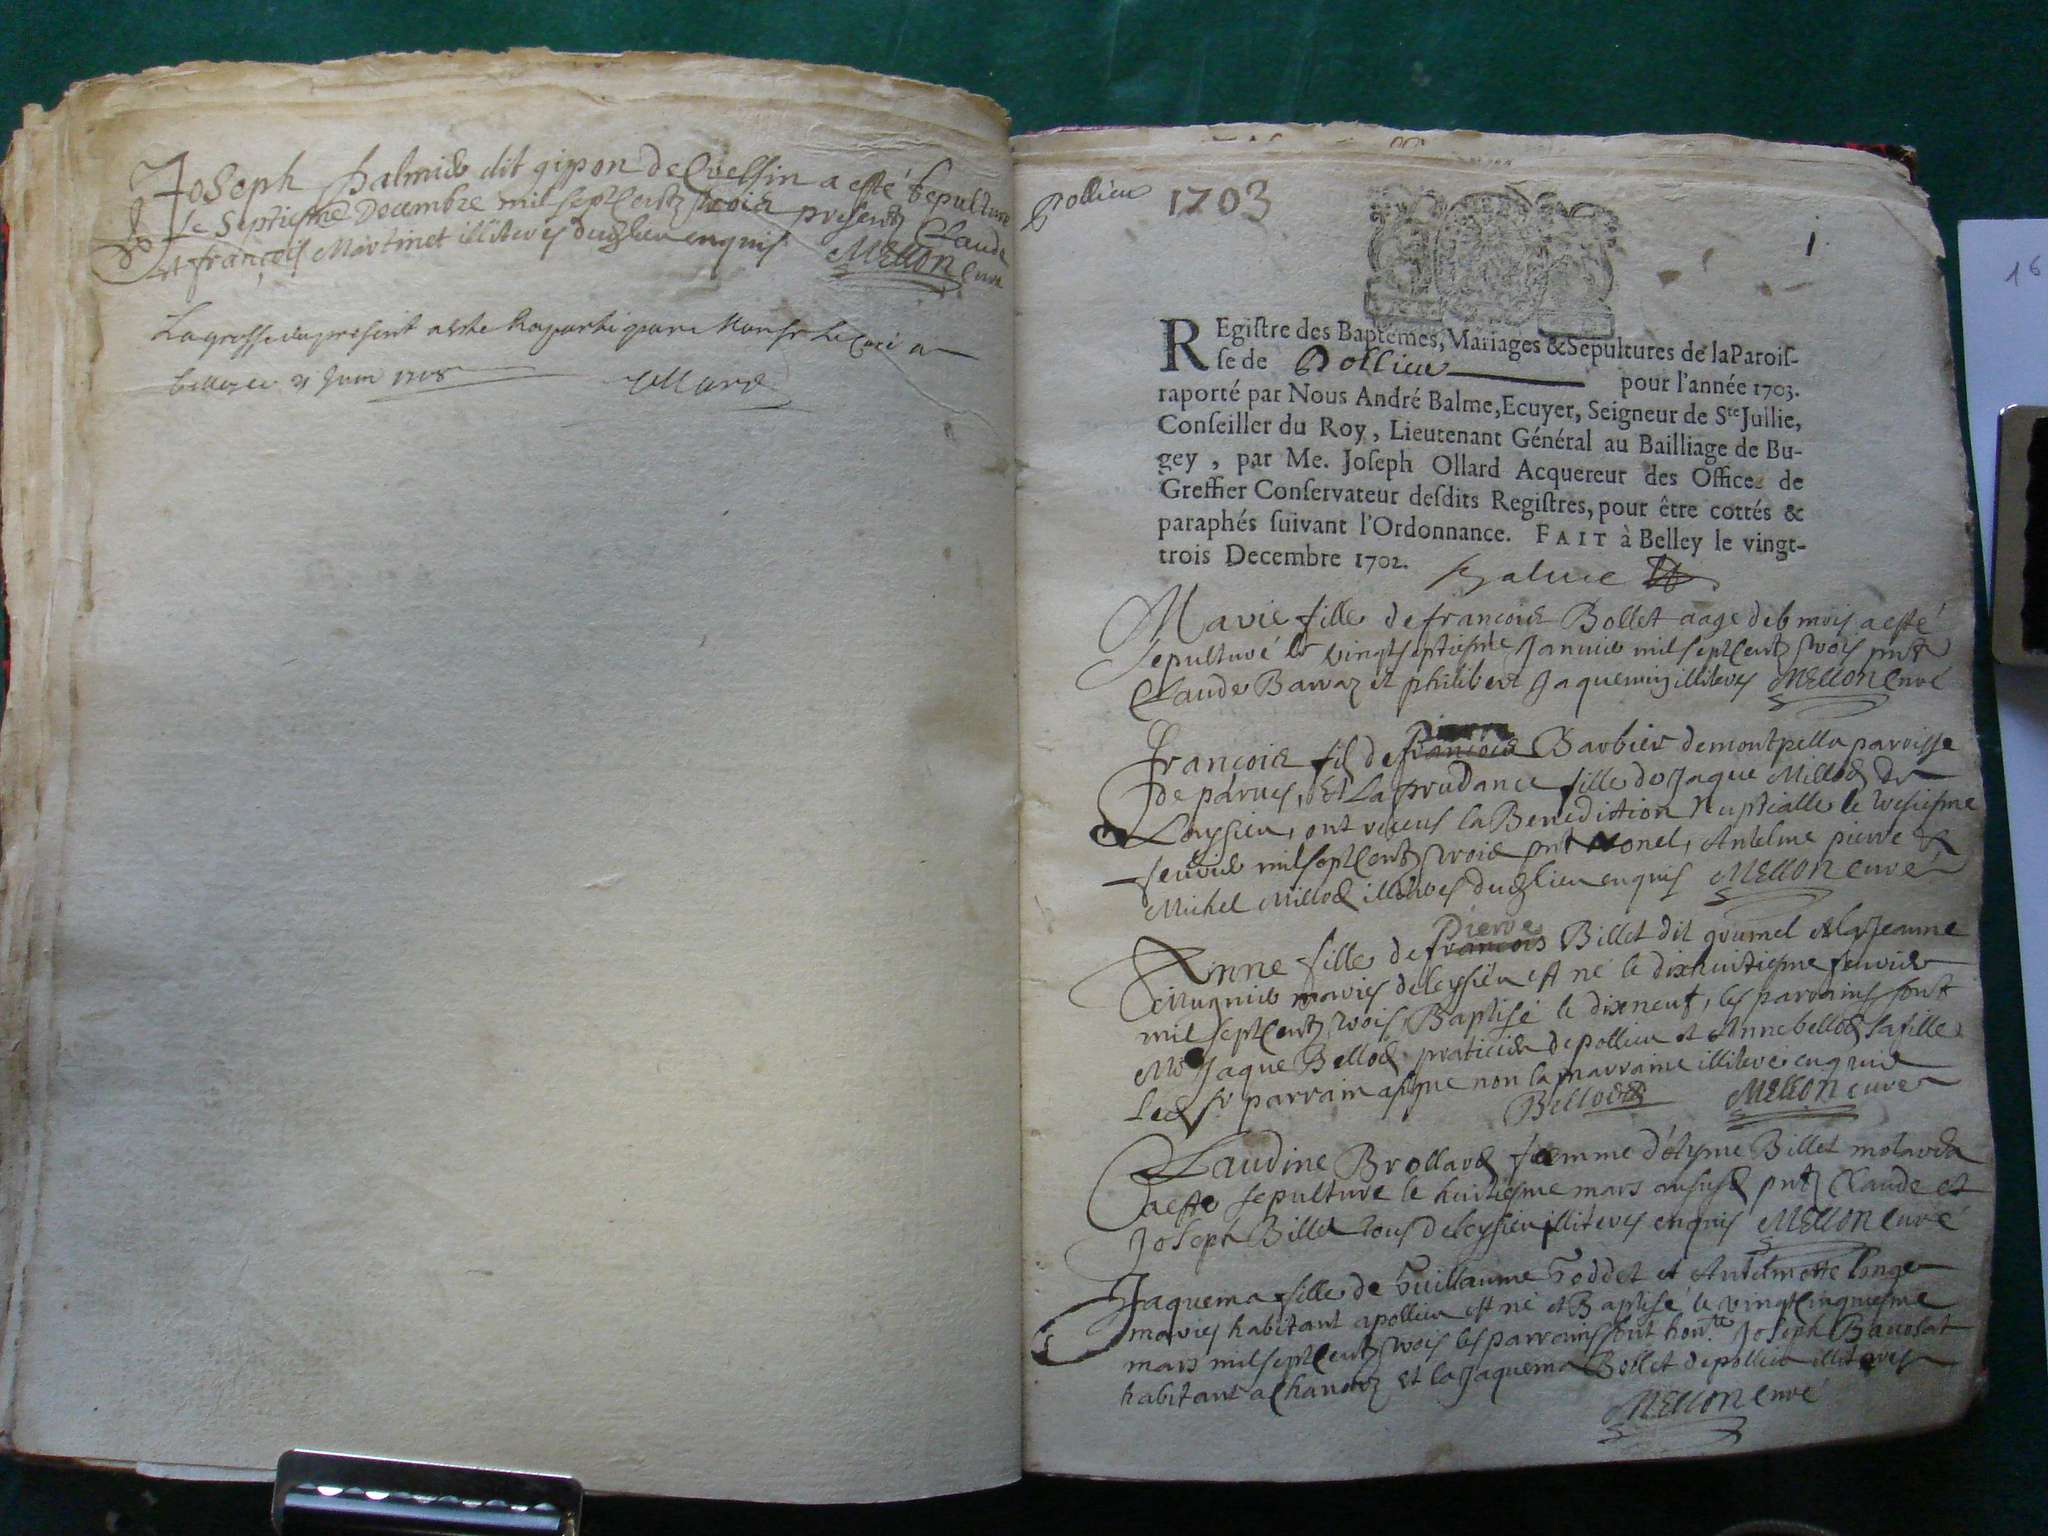 Joseph balmie dit gipon de Cuelsin a esté sepulturé
le septiesme Decembre mil sept Centz trois presentz Claude
et françois Martinet illiteres dudlieu enquis MELLON Curé
La grosse du present a este Raportée par Monsr le Curé a
belley ce 21 Juin 1708 Ollard
Pollieu 1703
1
REgiſtre des Baptêmes, Mariages & Sepultures de la Paroiſ-
ſe de Pollieu pour l'année 1703.
raporté par Nous André Balme, Ecuyer, Seigneur de Ste Jullie,
Conſeiller du Roy, Lieutenant Général au Bailliage de Bu-
gey, par Me. Joſeph Ollard Acquereur des Office de
Greffier Conſervateur deſdits Regiſtres, pour être cottés &
paraphés ſuivant l'Ordonnance. FAIT à Belley le vingt-
trois Decembre 1702. Balme
Marie fille de francois Bollet aage de 6 mois a esté
sepulturé le vingtseptiesme Januie mil sept Centz trois pntz
Claude Barraz et philibert Jaquemin illiteres MELLON Curé
francois fil de francois Pierre Barbier de montpella paroisse
de parues, Et La prudance fille de Jaque Milliod de
Loyssieu, ont receus la Benediction Nuptialle le tresiesme
feurie mil sept Centz trois pnt Nonel, Antelme pierre &
Michel Milliod illiteres dudlieu enquis MELLON curé
Anne fille de francois Pierre Billet dit grumel et la Jeanne
Mugnie maries de leyssieu est né le dixhuitiesme feurie
mil sept Centz trois, Baptisé le dixneuf, les parrains sont
Mr Jaque Bellod praticien de pollieu et Anne bellod sa fille
Led sr parrain a signe non la marraine illitere enquise
Bellod MELLON curé
Claudine Brollard femme d'etyene Billet molarda
a este sepulture le huitiesme mars susd pntz Claude et
Joseph Billet tous de leyssieu illiteres enquis MELLON Curé
Jaquema fille de Guillaume Goddet et Antelmette longe
maries habitant a pollieu est né et Baptisé le vingtcinquiesme
mars mil sept Centz trois les parrains sont honte Joseph Bauolat
habitant a Chanaz et la Jaquema Bollet de pollieu illiteres
MELLON Curé
16